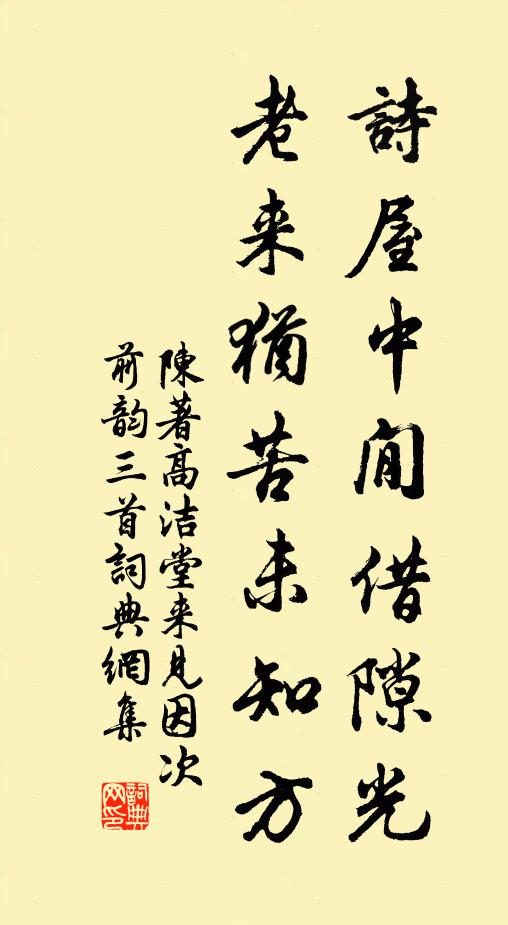 詩屋中間借隙光
老来猶苦未知方
陳著高洁堂来見因次
前韵三首詞典網集
詞典网印